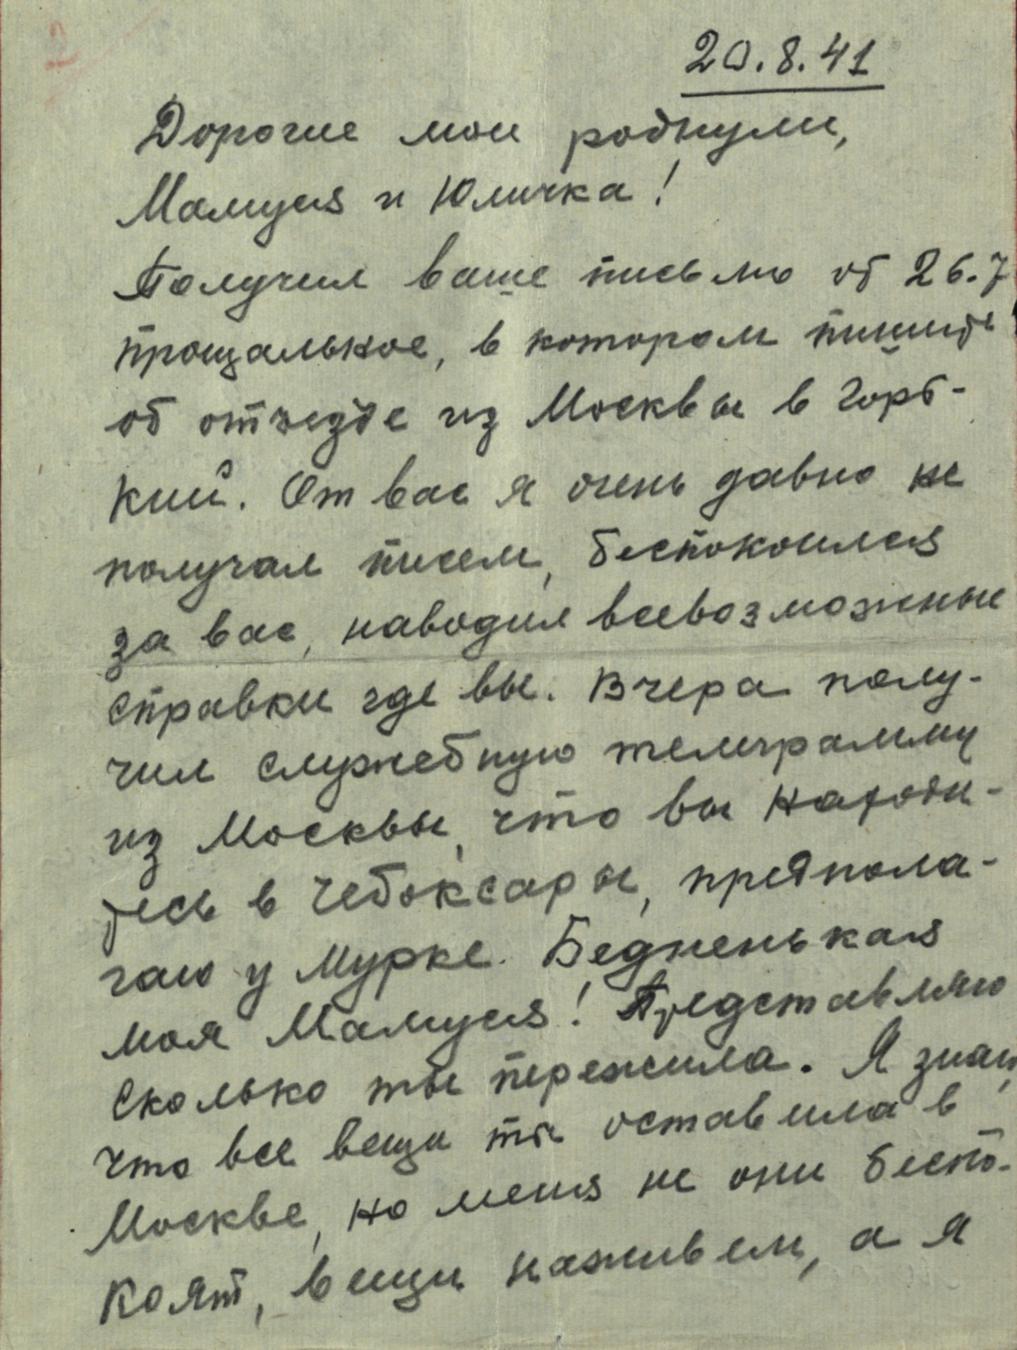 20.8.41
Дорогие мои роднули,
Мамуся и Юличка!
Получил ваше письмо от 26.7
прощальное, в котором пишите
об отъезде из Москвы в Горь-
кий. От вас я очень давно не
получал писем, беспокоился
за вас, наводил всевозможные
справки где вы. Вчера полу-
чил служебную телеграмму
из Москвы, что вы находи-
тесь в Чебоксары, предпола-
гаю у Мурке. Бедненькая
моя Мамуся! Представляю
сколько ты пережила. Я знаю,
что все вещи ты оставила в
Москве, но меня не они беспо-
коят, вещи наживем, а я